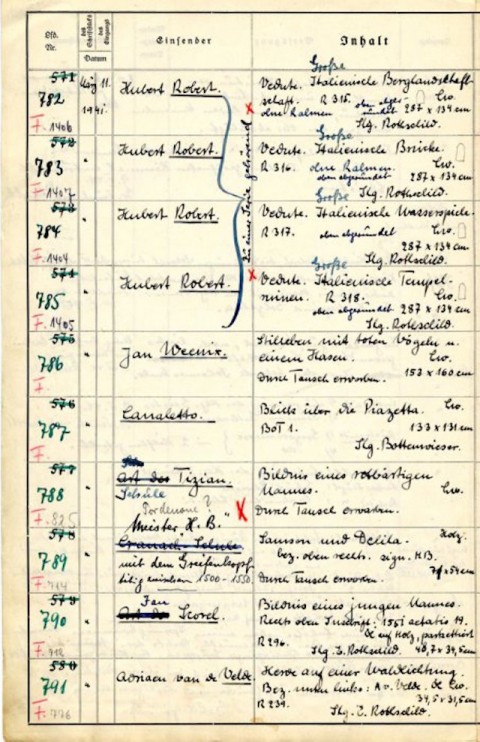 Lfd. Nr.
des Schriftstücks
des Eingangs
Datum
Einsender
Inhalt
571
782
F. 1406
Aug. 11.
1941.
Hubert Robert.
Große
Vedute. Italienische Berglandschaft
R 315. oben abge-
rundet Lw.
ohne Rahmen 287 x 134 cm
Slg. Rothschild.
zu einer Serie gehörend
572
783
F. 1407
"
Hubert Robert.
Große
Vedute. Italienische Brücke.
R 316. ohne Rahmen Lw.
oben abgerundet 287 x 134 cm
Slg. Rothschild.
573
784
F. 1404
"
Hubert Robert.
Große
Vedute. Italienische Wasserspiele.
R 317. oben abgerundet Lw.
287 x 134 cm
Slg. Rothschild.
574
785
F. 1405
"
Hubert Robert.
Große
Vedute. Italienische Tempel-
ruinen. R 318. Lw.
oben abgerundet 287 x 134 cm
Slg. Rothschild.
575
786
F.
"
Jan Weenix.
Stilleben mit toten Vögeln u.
einem Hasen. Lw.
Durch Tausch erworben. 153 x 160 cm
576
787
F.
"
Canaletto.
Blick über die Piazzetta. Lw.
BoT 1. 133 x 131 cm
Slg. Bottenwieser.
577
788
F. 825
"
Art des Tizian.
Schule
Pordenone?
Bildnis eines rotbärtigen
Mannes. Lw.
Durch Tausch erworben.
578
789
F.
"
Meister "H. B."
Cranach-Schule
mit dem Greifenkopf
tätig zwischen 1500-1550.
Samson und Delila. Holz.
bez. oben rechts. sign. HB.
Durch Tausch erworben.
579
790
F.
"
Jan
Art des Scorel.
Bildnis eines jungen Mannes.
Rechts oben Inschrift: 1551 aetatis 19.
R 296. de auf Holz, parkettiert
Slg. E. Rothschild. 40,7 x 34,5 cm
580
791
F. 776
"
Adriaen van de Velde.
Herde auf einer Waldlichtung.
Bez. unten links: A. v. Velde. de Lw.
R 239. 34,5 x 31,5 cm
Slg. E. Rothschild.